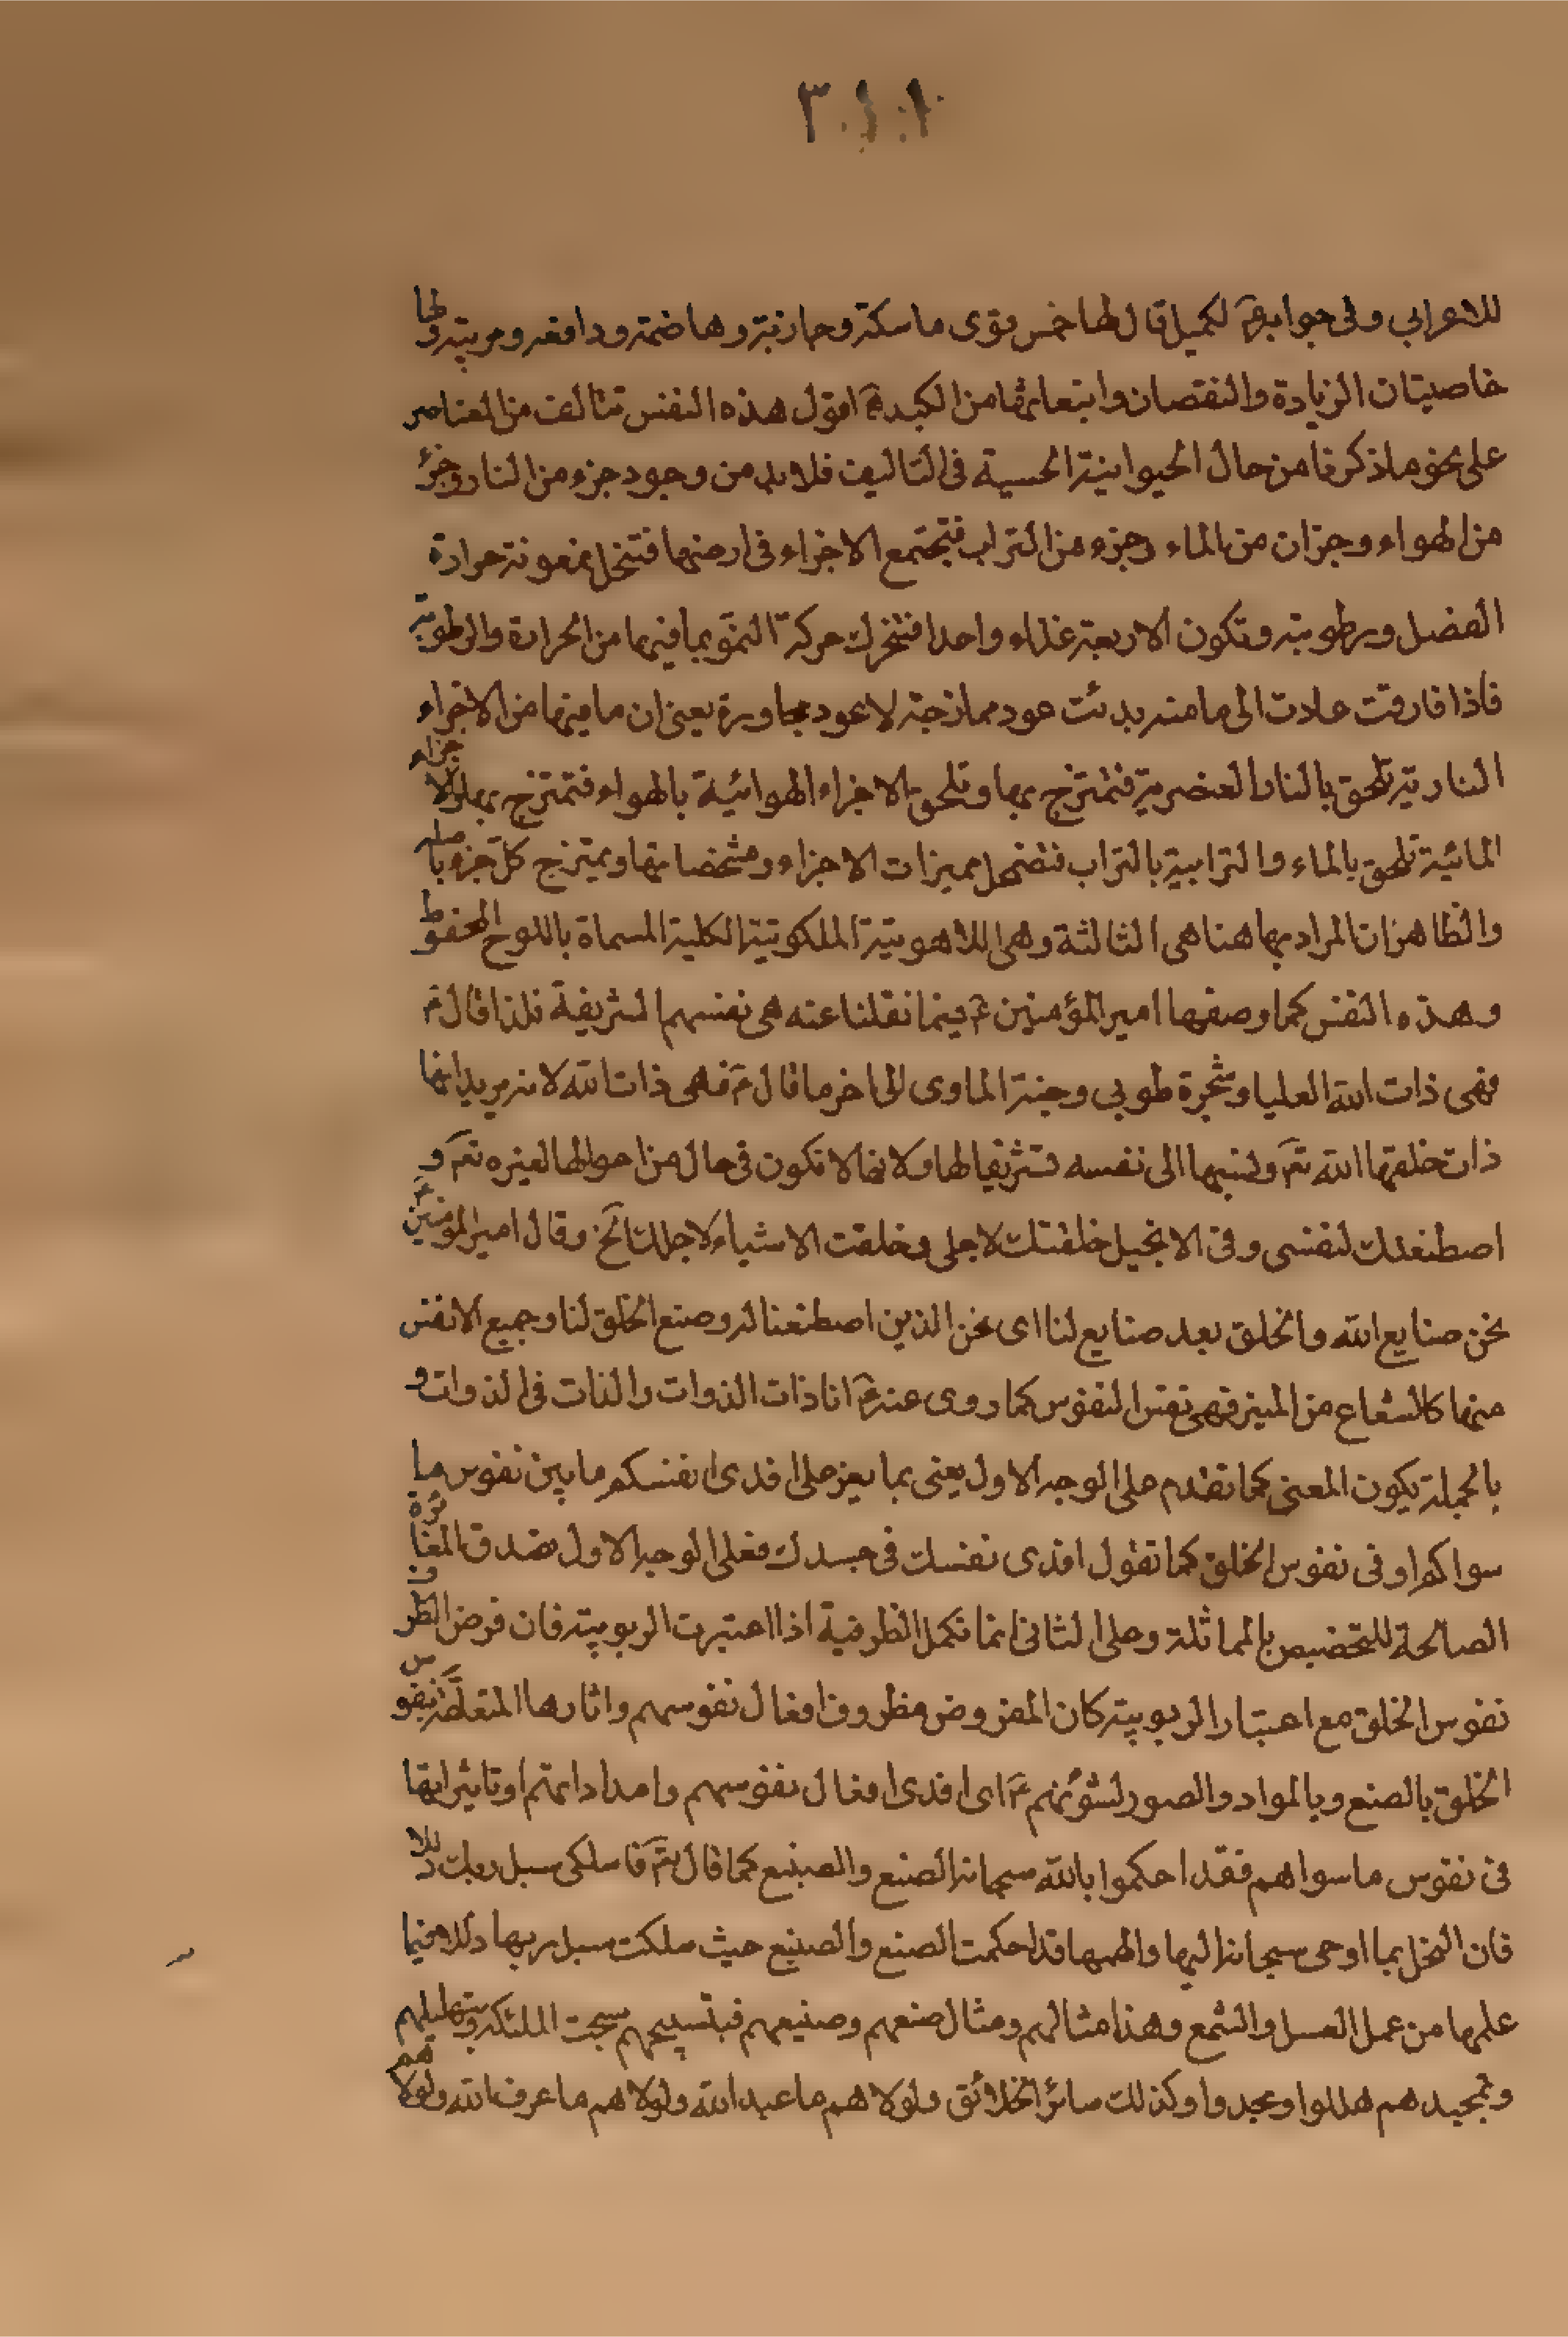 ٣٠١٠١
للاعرابي وفى جوابه عۤ لكميل قال لها خمس قوى ماسكة وجاذبة وهاضمة ودافعة ومربية ولها
خاصيتان الزيادة والنقصان وانبعاثها من الكبد هۤ اقول هذه النفس تتالف من العناصر
على نحو ما ذكرنا من حال الحيوانية الحسية فى التاليف فلا بد من وجود جزء من النار وجزء
من الهواء وجزان من الماء وجزء من التراب فتجتمع الاجزاء فى ارضها فتنحل بمعونة حرارة
الفضل ورطوبته وتكون الاربعة غذاء واحدا فتتحرك حركة النمو بما فيها من الحرارة والرطوبة
فاذا فارقت عادت الى ما منه بدئت عود ممازجة لا عود مجاورة يعنى ان ما فيها من الاجزاء
النارية تلحق بالنار العنصرية فتمتزج بها وتلحق الاجزاء الهوائية بالهواء فتمتزج بها والاجزاء
المائية تلحق بالماء والترابية بالتراب فتضمحل مميزات الاجزاء ومشخصاتها ويمتزج كل جزء باصله
والظاهر ان المراد بها هنا هى الثالثة وهى اللاهوتية الملكوتية الكلية المسماة باللوح المحفوظ
وهذه النفس كما وصفها امير المؤمنين عۤ فيما نقلنا عنه هى نفسهم الشريفة فلذا قال عۤ
فهى ذات الله العليا وشجرة طوبى وجنة الماوى الى اخر ما قال عۤ فهى ذات الله لانه يريد انها
ذات خلقها الله تعۤ ونسبها الى نفسه تشريفا لها ولانها لا تكون فى حال من احوالها لغيره تعۤ و
اصطنعتك لنفسى وفى الانجيل خلقتك لاجلى وخلقت الاشياء لاجلك الخ وقال امير المؤمنين عۤ
نحن صنايع الله والخلق بعد صنايع لنا اى نحن الذين اصطنعنا له وصنع الخلق لنا وجميع الانفس
منها كالشعاع من المنير فهى نفس النفوس كما روى عنه عۤ انا ذات الذوات والذات فى الذوات و
بالجملة يكون المعنى كما تقدم على الوجه الاول يعنى بما يعز على افدى انفسكم ما بين نفوس ما
سواكم او فى نفوس الخلق كما تقول افدى نفسك فى جسدك فعلى الوجه الاول تصدق المغائرة
الصالحة للتخصيص بالمماثلة وعلى الثانى انما تكمل الظرفية اذا اعتبرت الربوبية فان فرض الظرف
نفوس الخلق مع اعتبار الربوبية كان المفروض مظروفا افعال نفوسهم واثارها المتعلقة بنفوس
الخلق بالصنع وبالمواد والصور لشؤنهم عۤ اى افدى افعال نفوسهم وامداداتهم او تاثيراتها
فى نفوس ما سواهم فقد احكموا بالله سبحانه الصنع والصنيع كما قال تعۤ فاسلكى سبل ربك ذللا
فان النحل بما اوحى سبحانه اليها والهمها قد احكمت الصنع والصنيع حيث سلكت سبل ربها ذللا فيما
علمها من عمل العسل والشمع وهذا مثالهم ومثال صنعهم وصنيعهم فبتسبيحهم سبحت الملئكة وبتهليلهم
وتمجيدهم هللوا ومجدوا وكذلك سائر الخلائق ولولاهم ما عبد الله ولولاهم ما عرف الله ولولاهم